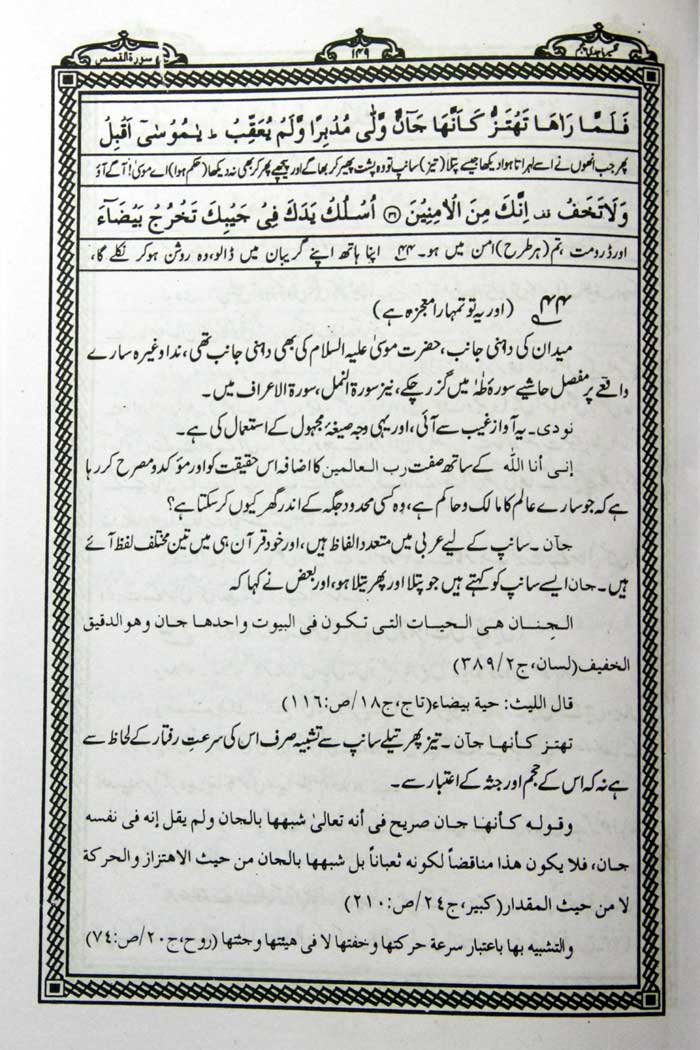 تفسیر ماجدی پنجم
۱۴۹
سورۃ القصص
فَلَمَّا رَاٰهَا تَهۡتَزُّ كَاَنَّهَا جَآنٌّ وَّلّٰى مُدۡبِرًا وَّلَمۡ يُعَقِّبۡ ؕ يٰمُوۡسٰٓى اَقۡبِلۡ
پھر جب انھوں نے اسے لہراتا ہوا دیکھا جیسے پتلا (تیز) سانپ تو وہ پشت پھیر کر بھاگے اور پیچھے پھر کر بھی نہ دیکھا (حکم ہوا) اے موسیٰ! آگے آؤ
وَلَا تَخَفۡ اِنَّكَ مِنَ الۡاٰمِنِيۡنَ ﴿۳۱﴾ اُسۡلُكۡ يَدَكَ فِىۡ جَيۡبِكَ تَخۡرُجۡ بَيۡضَآءَ
اور ڈرو مت، تم (ہر طرح) امن میں ہو۔ ۴۴ اپنا ہاتھ اپنے گریبان میں ڈالو، وہ روشن ہو کر نکلے گا،
۴۴ (اور یہ تو تمہارا معجزہ ہے)
میدان کی داہنی جانب، حضرت موسیٰ علیہ السلام کی بھی داہنی جانب تھی، ندا وغیرہ سارے
واقعے پر مفصل حاشیے سورۂ طٰہٰ میں گزر چکے، نیز سورۃ النمل، سورۃ الاعراف میں۔
نودی۔ یہ آواز غیب سے آئی، اور یہی وجہ صیغۂ مجہول کے استعمال کی ہے۔
إنی أنا اللہ کے ساتھ صفت رب العالمین کا اضافہ اس حقیقت کو اور مؤکد و مصرح کر رہا
ہے کہ جو سارے عالم کا مالک و حاکم ہے، وہ کسی محدود جگہ کے اندر گھر کیوں کر سکتا ہے؟
جآن۔ سانپ کے لیے عربی میں متعدد الفاظ ہیں، اور خود قرآن ہی میں تین مختلف لفظ آئے
ہیں۔ جان ایسے سانپ کو کہتے ہیں جو پتلا اور پھرتیلا ہو، اور بعض نے کہا کہ
الجِنان هی الحیات التی تکون فی البیوت واحدها جان وهو الدقیق
الخفیف (لسان، ج۲/۳۸۹)
قال اللیث: حیة بیضاء (تاج، ج۱۸/ص:۱۱۶)
تهتز کأنها جآن۔ تیز پھرتیلے سانپ سے تشبیہ صرف اس کی سرعتِ رفتار کے لحاظ سے
ہے نہ کہ اس کے حجم اور جثہ کے اعتبار سے۔
وقوله کأنها جان صریح فی أنه تعالیٰ شبهها بالجان ولم یقل إنه فی نفسه
جان، فلا یکون هذا مناقضاً لکونه ثعباناً بل شبهها بالجان من حیث الاهتزاز والحرکة
لا من حیث المقدار (کبیر، ج۲۴/ص:۲۱۰)
والتشبیه بها باعتبار سرعة حرکتها وخفتها لا فی هیئتها وجثتها (روح، ج۲۰/ص:۷۴)